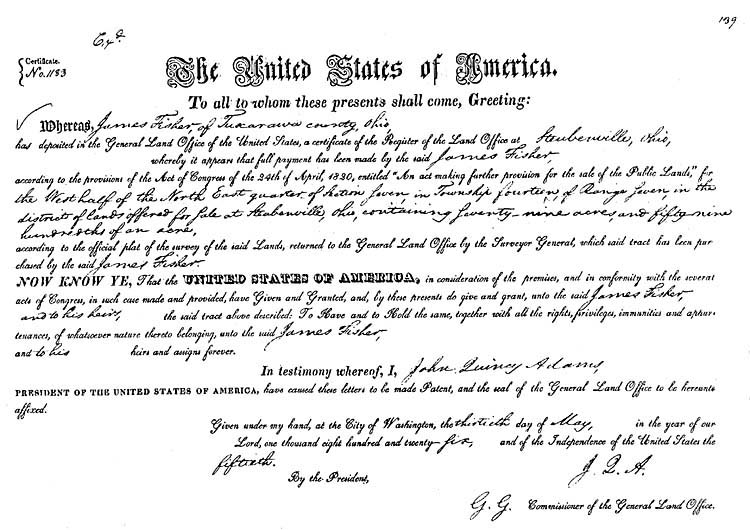 139
Exd.
Certificate.
No. 1183
The United States of America.
To all to whom these presents shall come, Greeting:
Whereas, James Fisher, of Tuscarawa county, Ohio,
has deposited in the General Land Office of the United States, a certificate of the Register of the Land Office at Steubenville, Ohio,
whereby it appears that full payment has been made by the said James Fisher,
according to the provisions of the Act of Congress of the 24th of April, 1820, entitled "An act making further provision for the sale of the Public Lands," for
the West half of the North East quarter, of Section Seven, in Township fourteen, of Range Seven in the
district of lands offered for Sale at Steubenville Ohio, containing Seventy-nine acres and fifty nine
hundredths of an acre,
according to the official plat of the survey of the said Lands, returned to the General Land Office by the Surveyor General, which said tract has been pur
chased by the said James Fisher.
NOW KNOW YE, That the UNITED STATES OF AMERICA, in consideration of the premises, and in conformity with the several
acts of Congress, in such case made and provided, have Given and Granted, and, by these presents do give and grant, unto the said James Fisher,
and to his heirs, the said tract above described: To Have and to Hold the same, together with all the rights, privileges, immunities and appur-
tenances, of whatsoever nature thereto belonging, unto the said James Fisher,
and to his heirs and assigns forever.
In testimony whereof, I, John Quincy Adams,
PRESIDENT OF THE UNITED STATES OF AMERICA, have caused these letters to be made Patent, and the seal of the General Land Office to be hereunto
affixed.
Given under my hand, at the City of Washington, the thirtieth day of May, in the year of our
Lord, one thousand eight hundred and twenty-six, and of the Independence of the United States the
fiftieth.
By the President, J. Q. A.
G. G. Commissioner of the General Land Office.